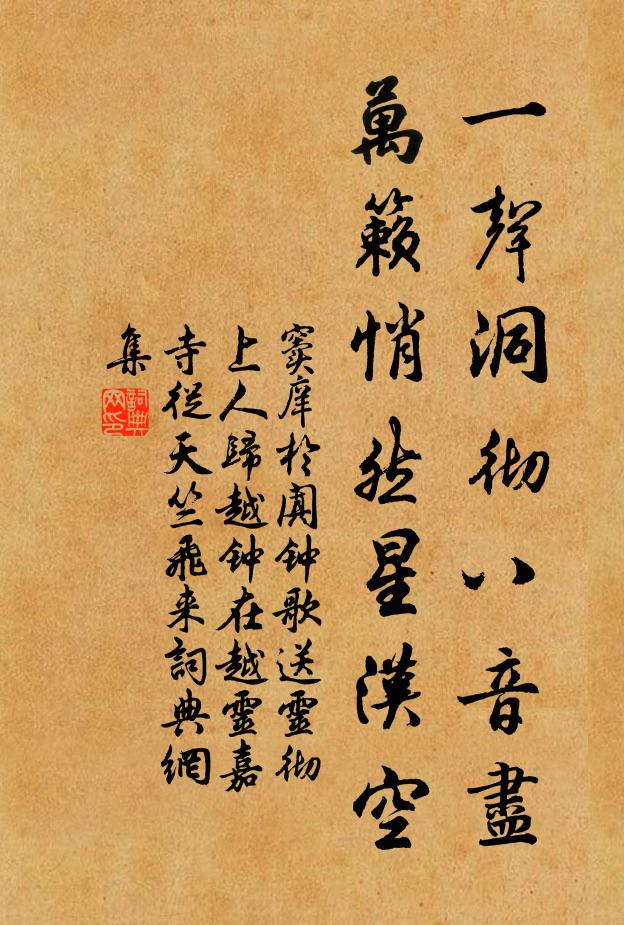 一聲洞彻八音盡
萬籟悄然星漢空
窦庠於闻钟歌送靈彻
上人歸越钟在越靈嘉
寺從天竺飛来詞典網
集
詞典
网印